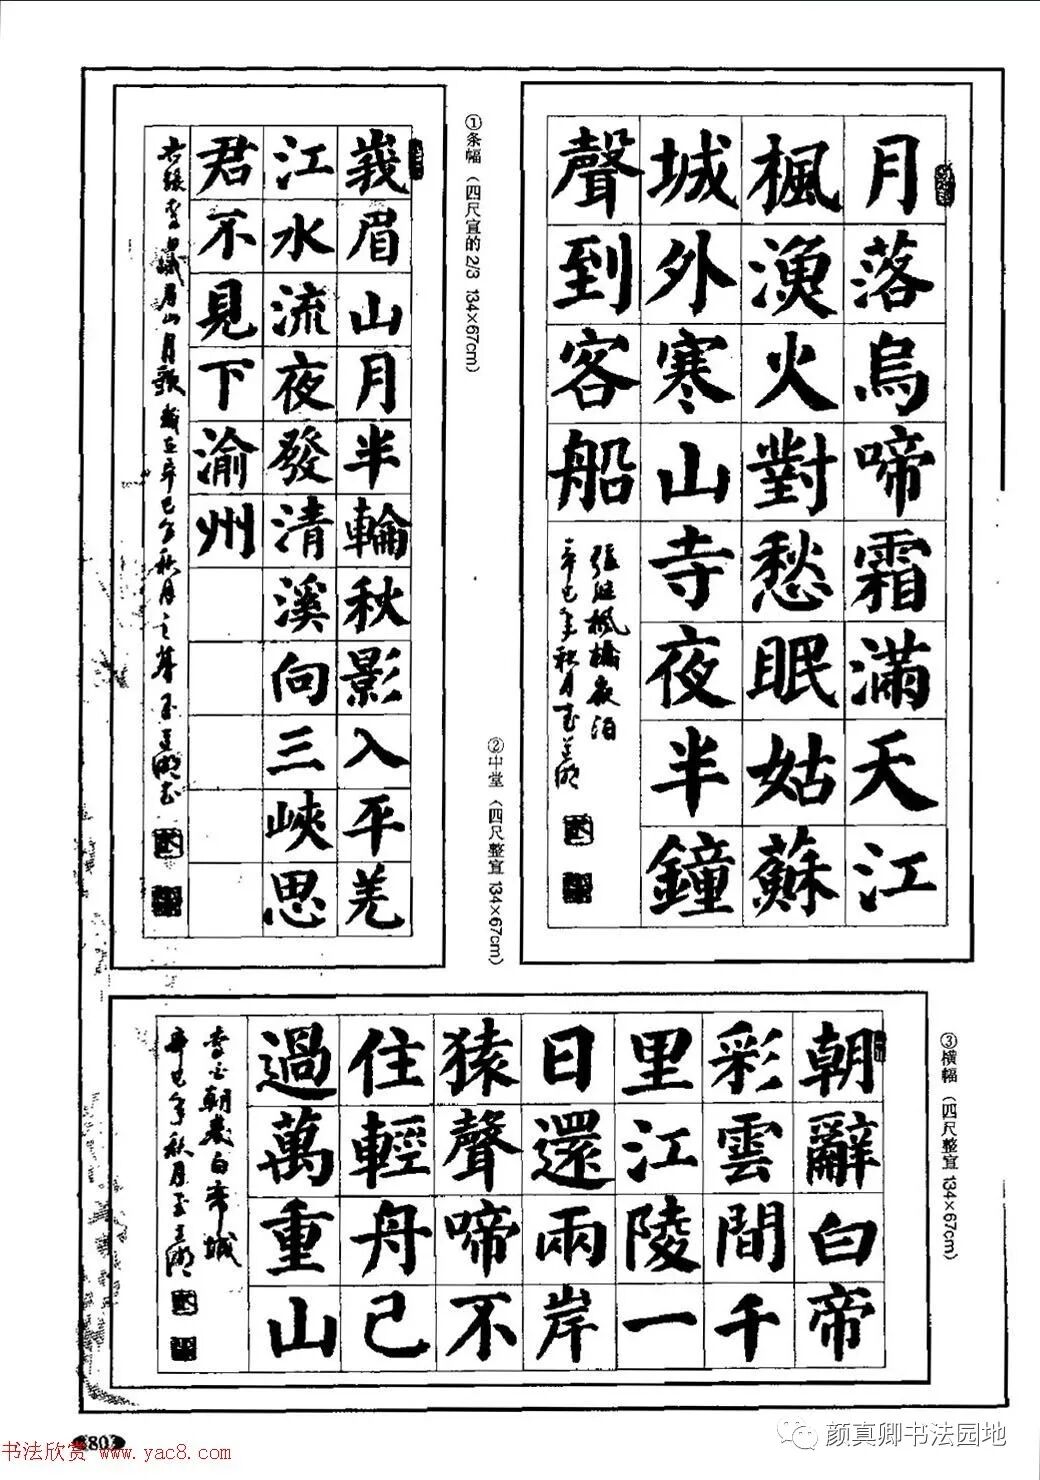 月落烏啼霜滿天江
楓漁火對愁眠姑蘇
城外寒山寺夜半鐘
聲到客船
張繼楓橋夜泊
辛巳年秋月
①条幅（四尺宣的2/3 134×67cm）
峩眉山月半輪秋影入平羌
江水流夜發清溪向三峽思
君不見下渝州
②中堂（四尺整宣 134×67cm）
③横幅（四尺整宣 134×67cm）
朝辭白帝
彩雲間千
里江陵一
日還兩岸
猿聲啼不
住輕舟已
過萬重山
李白朝發白帝城
辛巳年秋月
803
书法欣赏 www.yac8.com
颜真卿书法园地